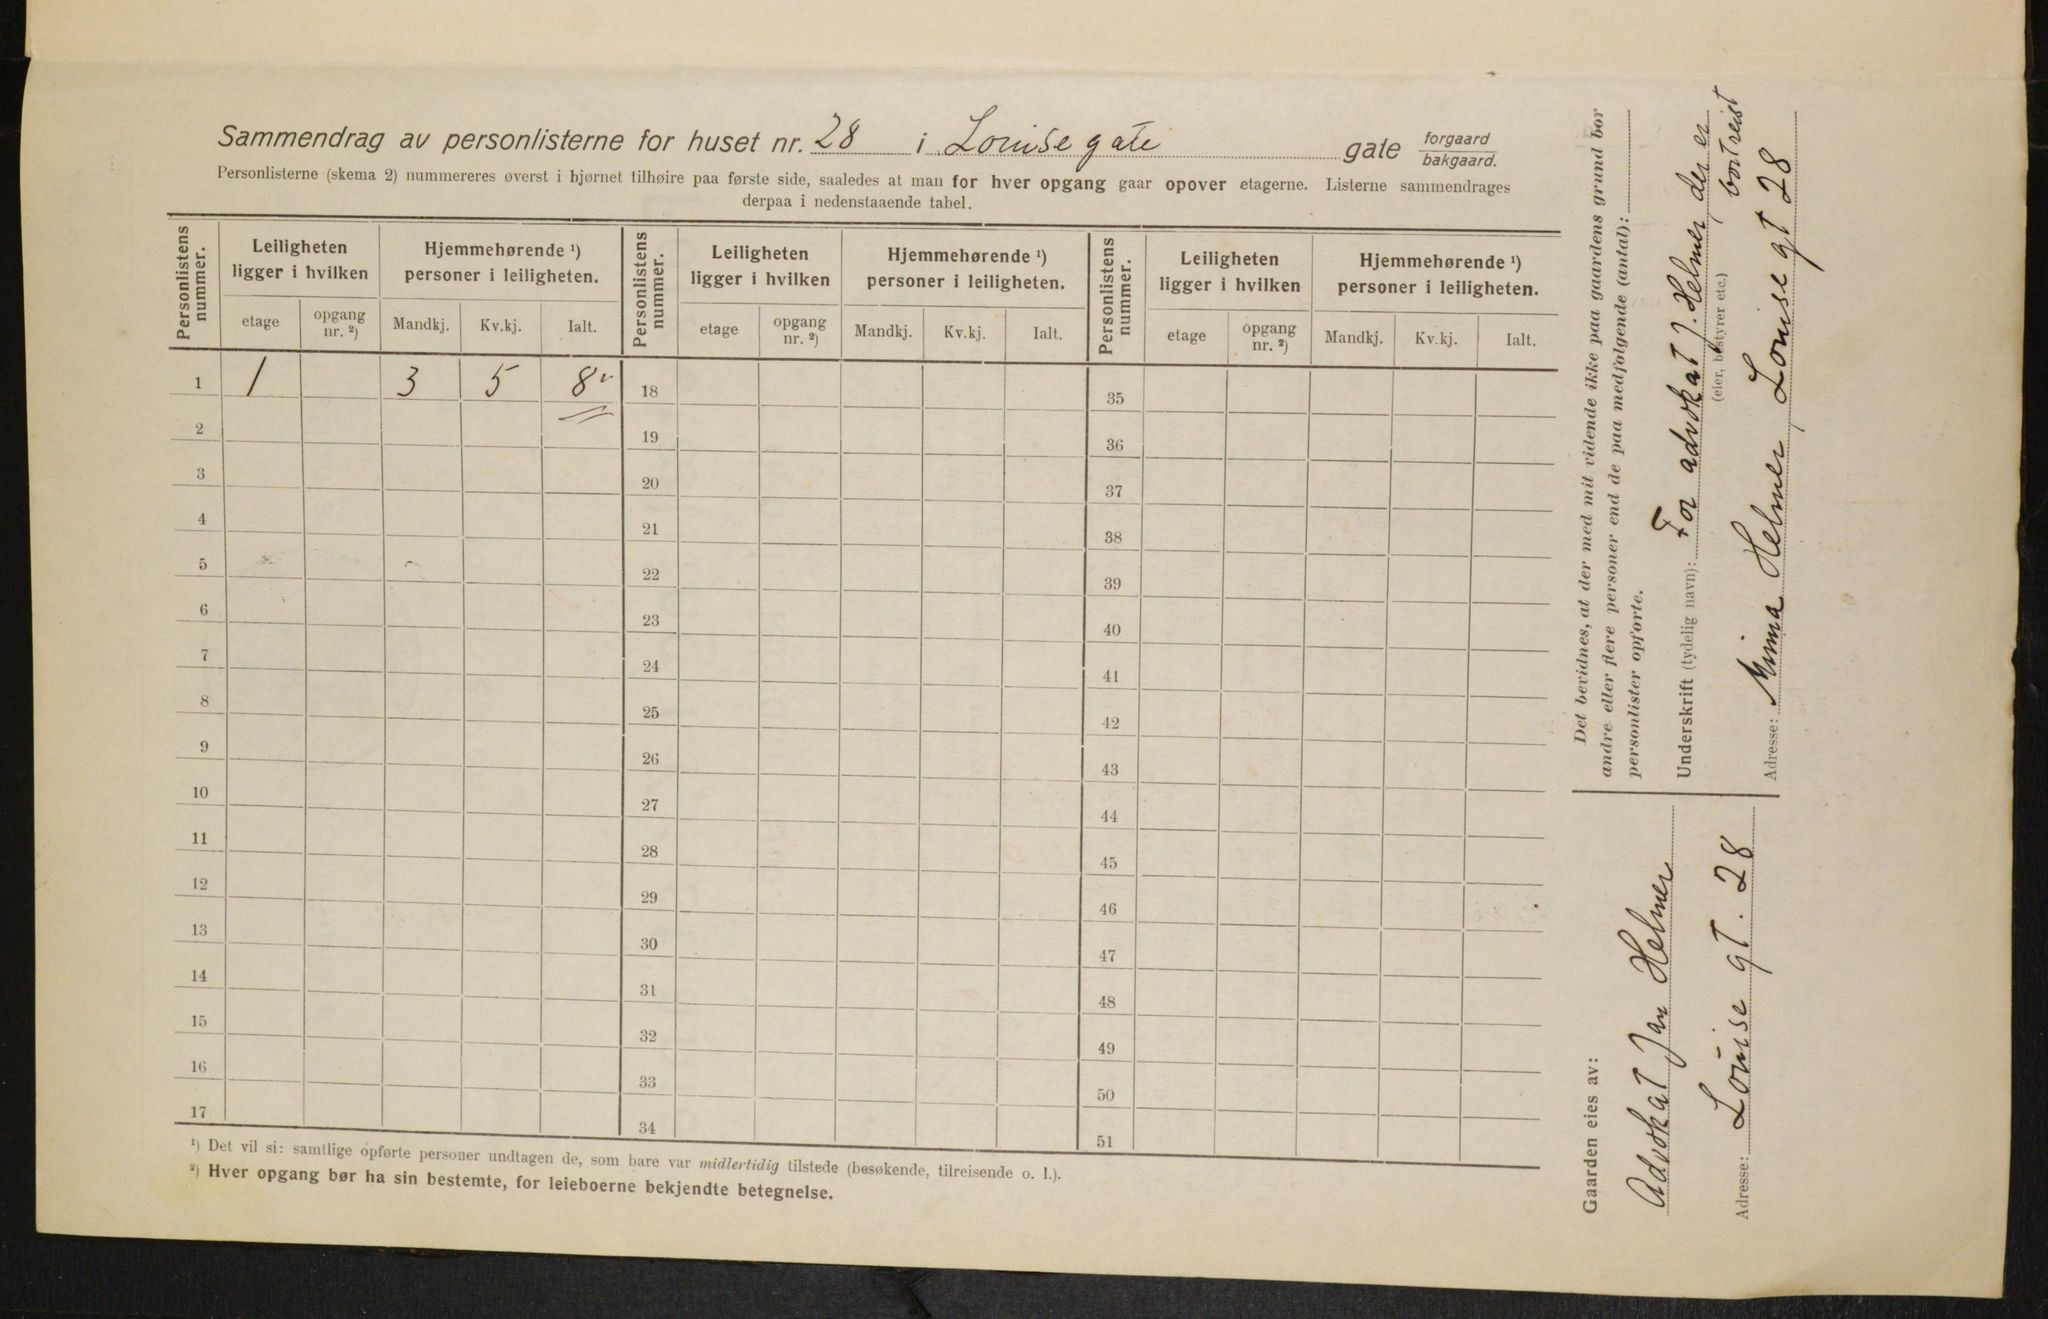 Sammendrag av personlisterne for huset nr. 28 i Louise gate gate forgaard bakgaard.
Personlisterne (skema 2) nummereres øverst i hjørnet tilhøire paa første side, saaledes at man for hver opgang gaar opover etagerne. Listerne sammendrages
derpaa i nedenstaaende tabel.
Personlistens nummer. Leiligheten ligger i hvilken Hjemmehørende ¹) personer i leiligheten. Personlistens nummer. Leiligheten ligger i hvilken Hjemmehørende ¹) personer i leiligheten. Personlistens nummer. Leiligheten ligger i hvilken Hjemmehørende ¹) personer i leiligheten.
etage opgang nr. ²) Mandkj. Kv.kj. Ialt. etage opgang nr. ²) Mandkj. Kv.kj. Ialt. etage opgang nr. ²) Mandkj. Kv.kj. Ialt.
1 1 3 5 8 18 35
2 19 36
3 20 37
4 21 38
5 22 39
6 23 40
7 24 41
8 25 42
9 26 43
10 27 44
11 28 45
12 29 46
13 30 47
14 31 48
15 32 49
16 33 50
17 34 51
¹) Det vil si: samtlige opførte personer undtagen de, som bare var midlertidig tilstede (besøkende, tilreisende o. l.).
²) Hver opgang bør ha sin bestemte, for leieboerne bekjendte betegnelse.
Det bevidnes, at der med mit vidende ikke paa gaardens grund bor
andre eller flere personer end de paa medfølgende (antal):
personlister opførte.
Underskrift (tydelig navn): For advokat J. Helmer, der er
bortreist
(eier, bestyrer etc.)
Adresse: Mima Helmer Louise gt 28
Gaarden eies av:
Advokat Jan Helmer
Adresse: Louise gt. 28